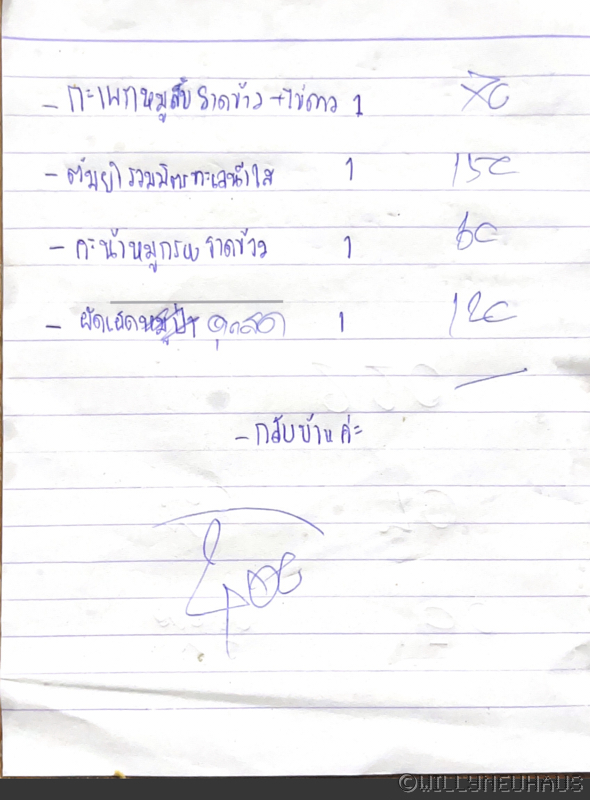 - กะเพราหมูสับราดข้าว + ไข่ดาว 1 70
- ต้มยำรวมมิตรทะเลน้ำใส 1 150
- คะน้าหมูกรอบราดข้าว 1 60
- ผัดเผ็ด 1 120
- กลับบ้านค่ะ
400
©WILLYNEUHAUS